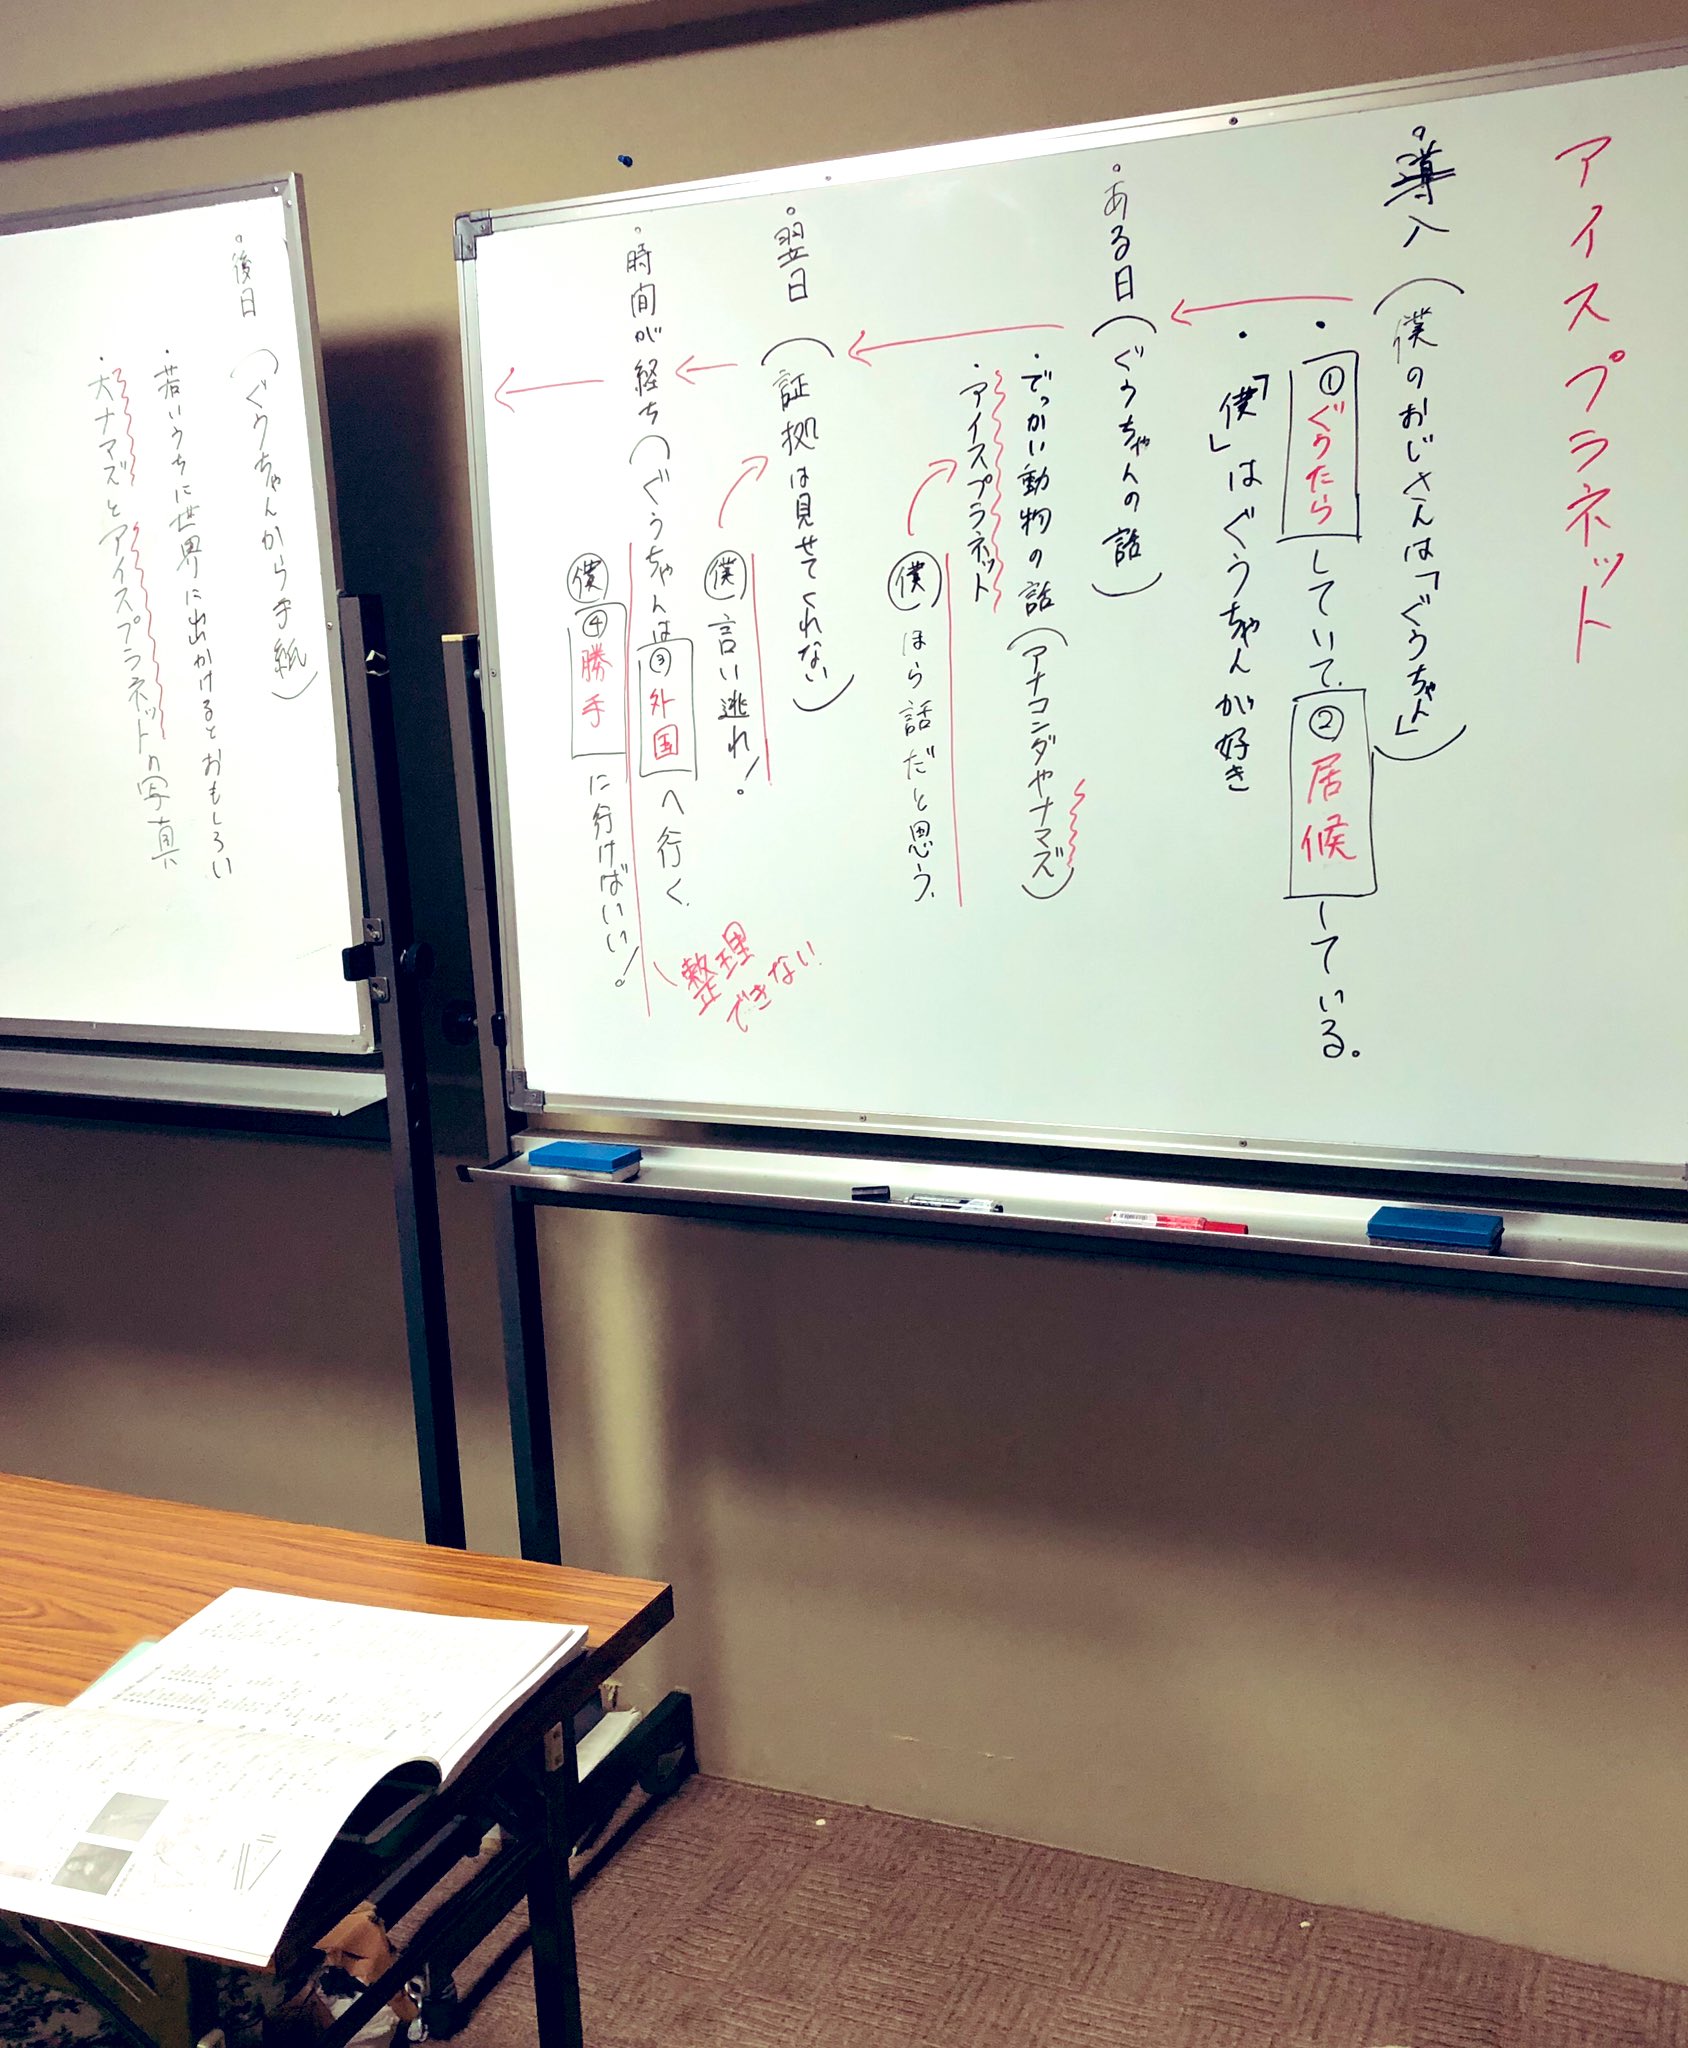 アイスプラネット
導入(僕のおじさんは「ぐうちゃん」)
・①ぐうたらしていて、②居候している。
・「僕」はぐうちゃんが好き
ある日(ぐうちゃんの話)
・でっかい動物の話(アナコンダやナマズ)
・アイスプラネット
僕 ほら話だと思う。
翌日(証拠は見せてくれない)
僕 言い逃れ!。
時間が経ち(ぐうちゃんは③外国へ行く。
僕④勝手に行けばいい!。
整理
できない!
後日(ぐうちゃんから手紙)
・若いうちに世界に出かけるとおもしろい
・大ナマズとアイスプラネットの写真